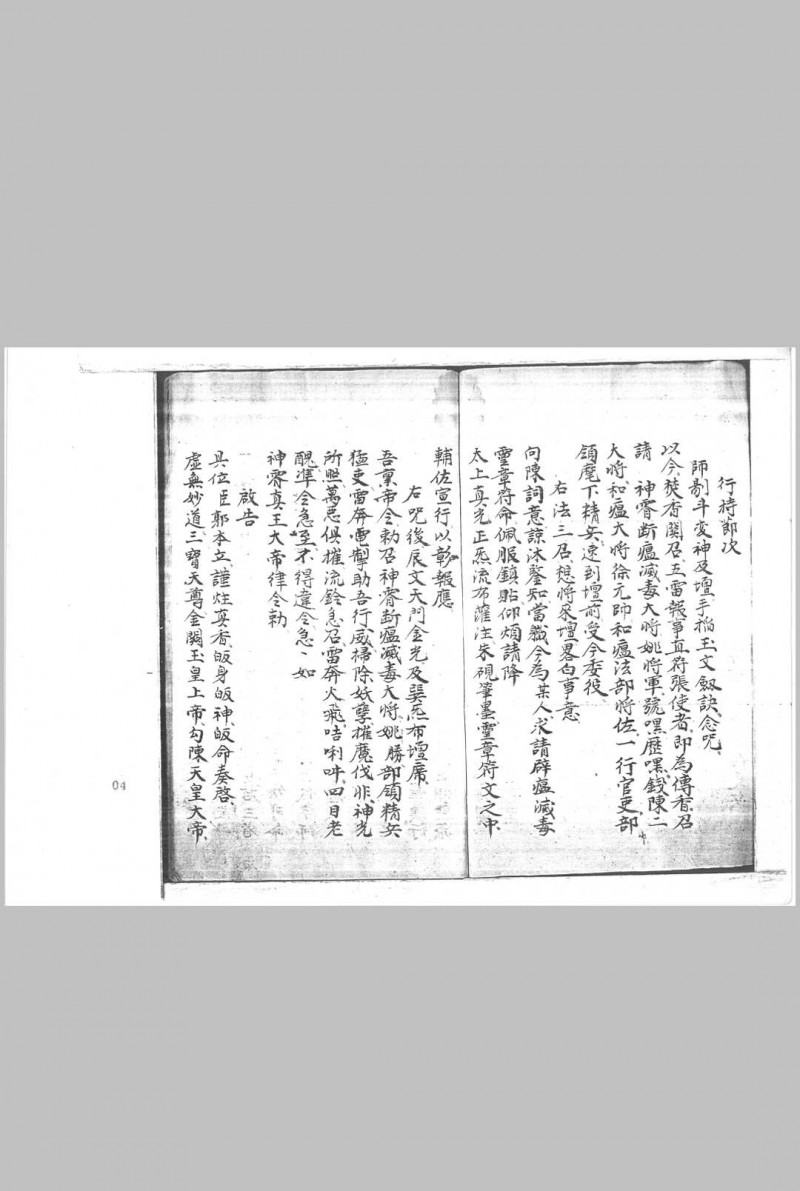 行持節次
師剔斗变神及壇手搯玉文劔訣念咒
以今焚香関召玉雷報事直符張使者即為傳香召
請 神霄断瘟滅毒大将姚将軍號嘿歷嘿錢陳二
大将和瘟大将徐元帅和瘟法部将佐一行官吏部
領麾下精兵速到壇前受今委役
右法三召想将來壇畧白事意
向陳詞意諒沐鑒知當職今為某人求請辟瘟滅毒
靈章符命佩服鎮貼仰煩請降
太上真光正炁流布薩注朱硯筆墨靈章符文之中
輔佐宣行以彰報應
右咒後辰文天門金光及巽炁布壇席
吾稟帝令勅召神霄断瘟滅毒大将姚勝部領精兵
猛吏雷奔電掣助吾行威掃除妖孽摧魔伐非神光
所照萬惡俱摧流鈴急召雷奔火飛咭唎吽四目老
醜準令急至不得違令急丶如
神霄真王大帝律令勅
啟告
具位臣郭本立謹炷真香皈身皈神皈命奏啓
虚無妙道三寳天尊金闕玉皇上帝勾陳天皇大帝
04